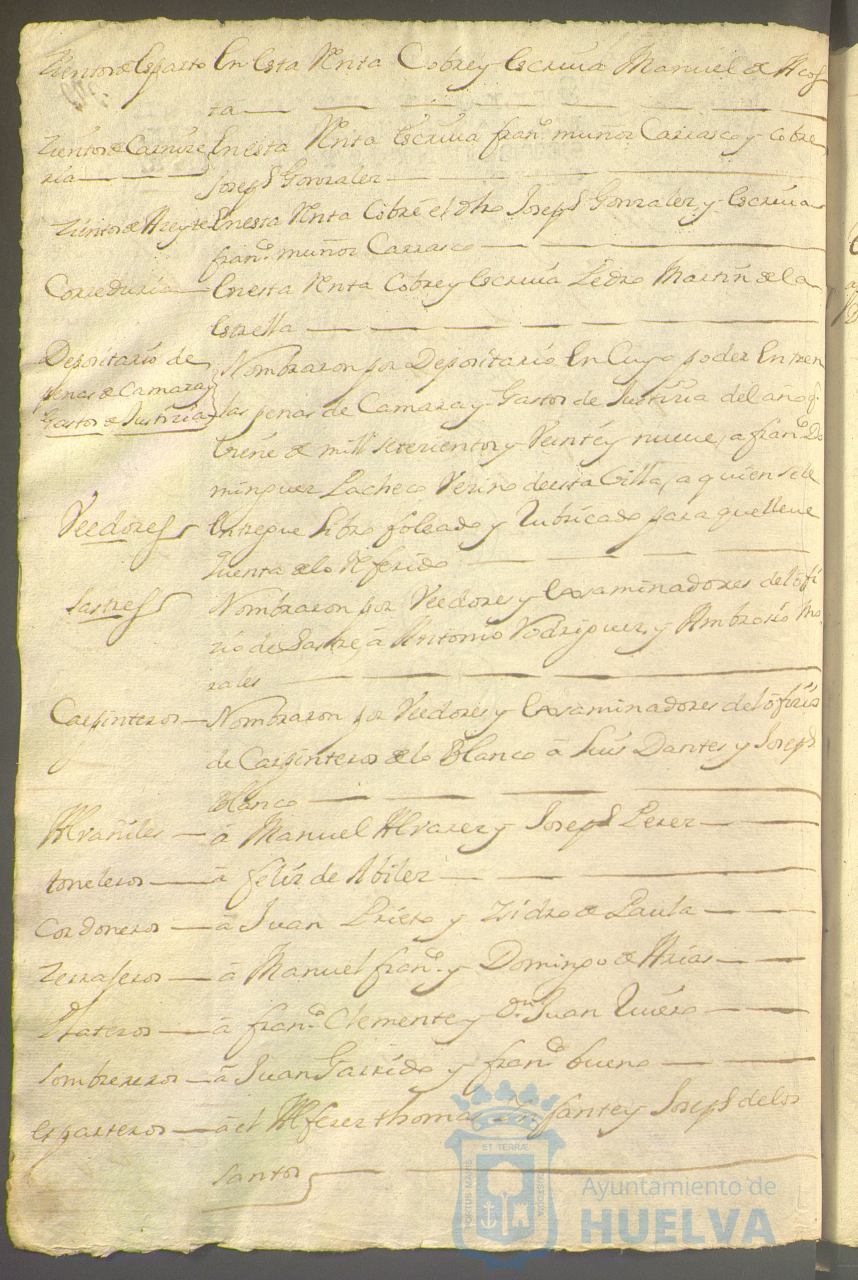 Zientos de Esparto En esta Renta Cobre y Escriua Manuel de Acos
ta
Zientos de Carnize En esta Renta Escriua fran.co muñoz Carrasco y cobre
ria Joseph Gonzalez
Zientos de Azeyte En esta Renta Cobre el dho Joseph Gonzalez y Escriua
fran.co muñoz Carrasco
Correduria En esta Renta Cobre y Escriua Pedro Martin de la
Estrella
Depositario de Nombraron por Depositario En Cuyo poder Entren
penas de Camara y las penas de Camara y Gastos de Justizia del año q.
Gastos de Justizia biene de mill setezientos y Veinte y nueue, a fran.co Do
minguez Pacheco Vezino de esta Villa, a quien se le
Veedores Entregue Libro foleado y Rubricado para que lleue
quenta de lo Referido
Sastres Nombraron por Veedores y Exsaminadores del ofi
zio de Sastre, â Antonio Rodriguez, y Ambrosio Mo-
rales
Carpinteros Nombraron por Veedores y Exsaminadores del ofizio
de Carpinteros de lo Blanco â Luis Dantes y Joseph
Blanco
Alvañiles â Manuel Alvarez y Joseph Perez
toneleros â felix de Abilez
Cordoneros â Juan Prieto y Isidro de Paula
Zerrajeros â Manuel fran.co y Domingo de Arias
Plateros â fran.co Clemente y Dn. Juan
Sombrereros â Juan Garrido y fran.co bueno
Esparteros â el Alferez thomas Ynfante y Joseph de los
Santos
ET TERRAE
PORTUS MARIS
CUSTODIA
Ayuntamiento de
HUELVA